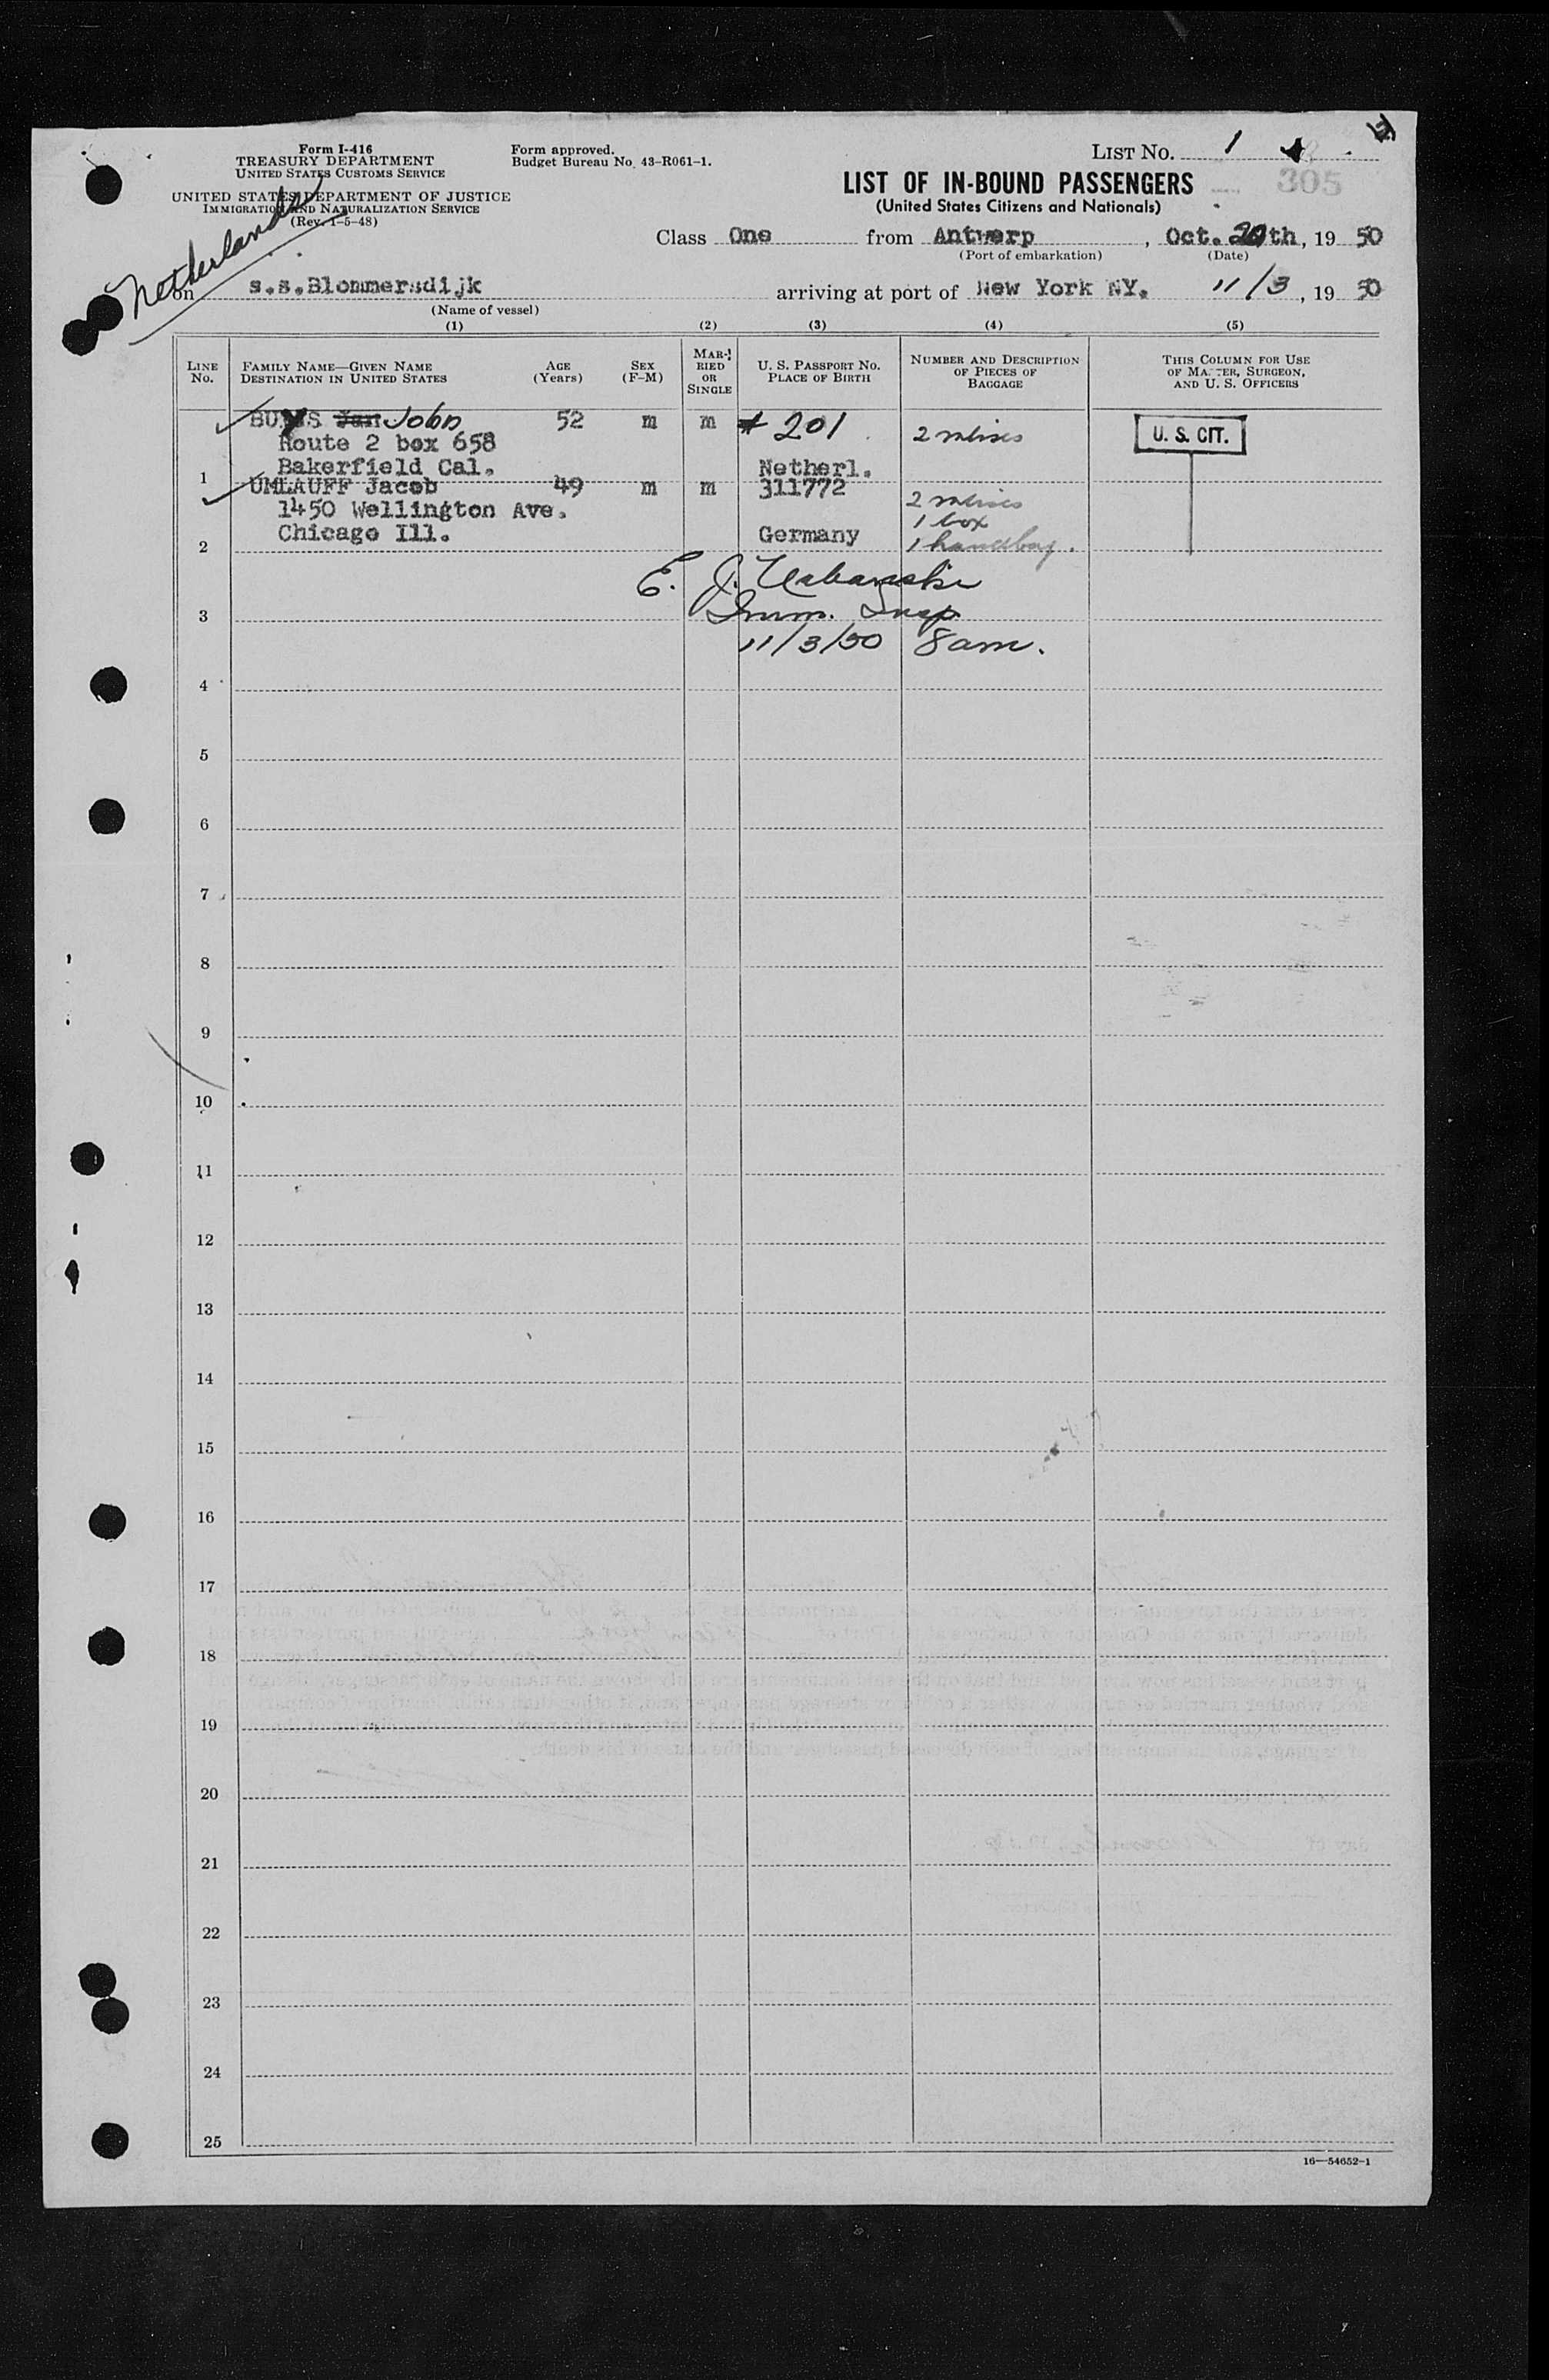 Form I-416
TREASURY DEPARTMENT
UNITED STATES CUSTOMS SERVICE
UNITED STATES DEPARTMENT OF JUSTICE
IMMIGRATION AND NATURALIZATION SERVICE
(Rev. 1-5-48)
Netherlands
Form approved.
Budget Bureau No. 43-R061-1.
LIST NO. 1
305
LIST OF IN-BOUND PASSENGERS
(United States Citizens and Nationals)
Class One from Antwerp, Oct. 20th, 19 50
(Port of embarkation) (Date)
on s.s.Blommersdijk arriving at port of New York NY. 11/3, 19 50
(Name of vessel)
(1) (2) (3) (4) (5)
LINE No. FAMILY NAME—GIVEN NAME DESTINATION IN UNITED STATES AGE (Years) SEX (F-M) MARRIED OR SINGLE U. S. PASSPORT NO. PLACE OF BIRTH NUMBER AND DESCRIPTION OF PIECES OF BAGGAGE THIS COLUMN FOR USE OF MASTER, SURGEON, AND U. S. OFFICERS
BUYS Jan John 52 m m # 201 U. S. CIT.
Route 2 box 658
1 Bakerfield Cal. Netherl.
UMLAUFF Jacob 49 m m 311772
1450 Wellington Ave. 1 box
2 Chicago Ill. Germany 1 handbag.
E. J.
3 Imm. Insp.
11/3/50 8am.
4
5
6
7
8
9
10
11
12
13
14
15
16
17
18
19
20
21
22
23
24
25
16—54652-1